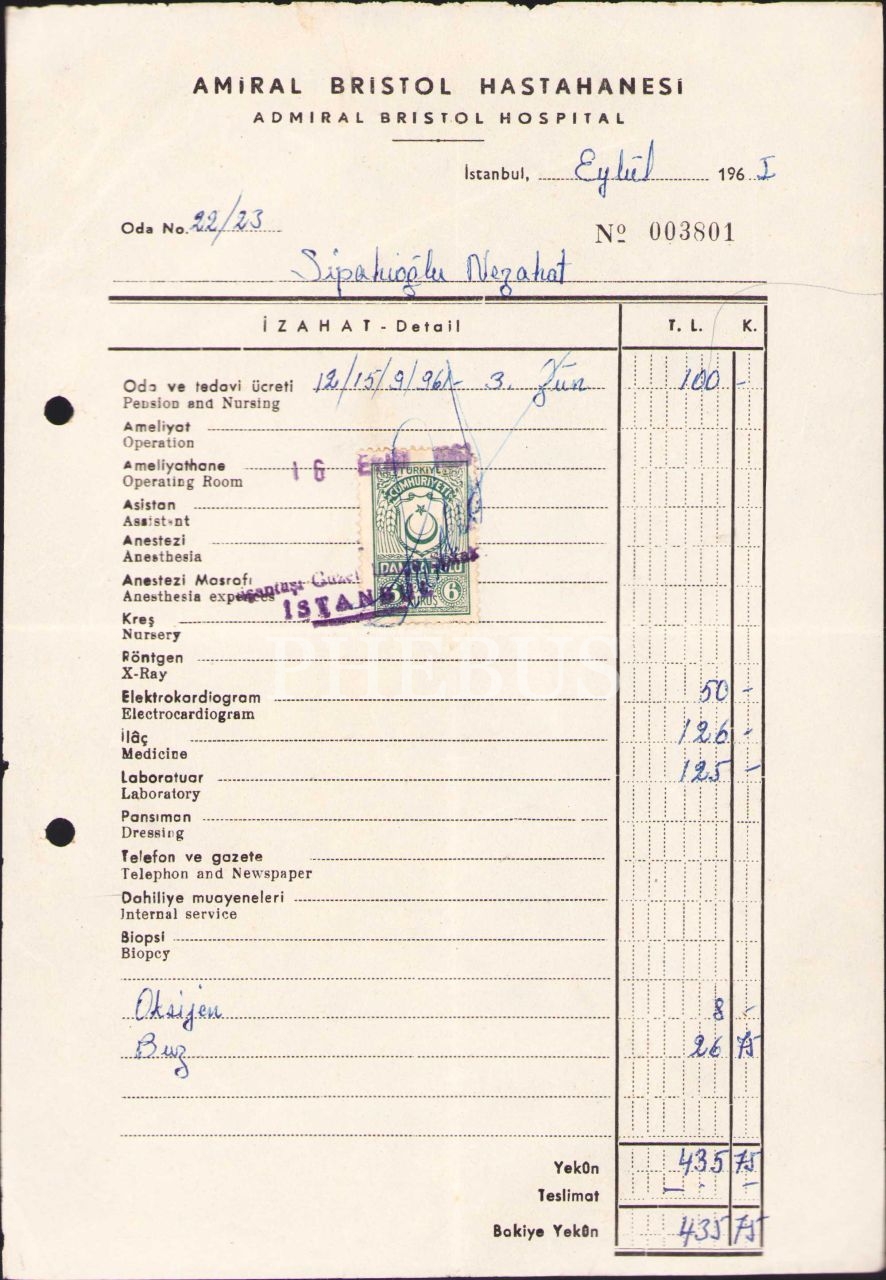 AMİRAL BRİSTOL HASTAHANESİ
ADMIRAL BRISTOL HOSPITAL
İstanbul, Eylül 196 I
Oda No. 22/23
Nº 003801
Sipahioğlu Nezahat
İZAHAT - Detail T. L. K.
Oda ve tedavi ücreti 12/15/9/961- 3. gün 100 -
Pension and Nursing
Ameliyat
Operation
Ameliyathane
Operating Room
16
TÜRKİYE
CUMHURİYETİ
Asistan
Assistant
Anestezi
Anesthesia
Anestezi Masrafı
Anesthesia expences
6
KURUŞ
İSTANBUL
Kreş
Nursery
Röntgen
X-Ray
PHEBUS
Elektrokardiogram 50 -
Electrocardiogram
İlâç 126 -
Medicine
Laboratuar 125 -
Laboratory
Pansıman
Dressing
Telefon ve gazete
Telephon and Newspaper
Dahiliye muayeneleri
Internal service
Biopsi
Biopcy
Oksijen 8 -
Buz 26 75
Yekûn 435 75
Teslimat - -
Bakiye Yekûn 435 75